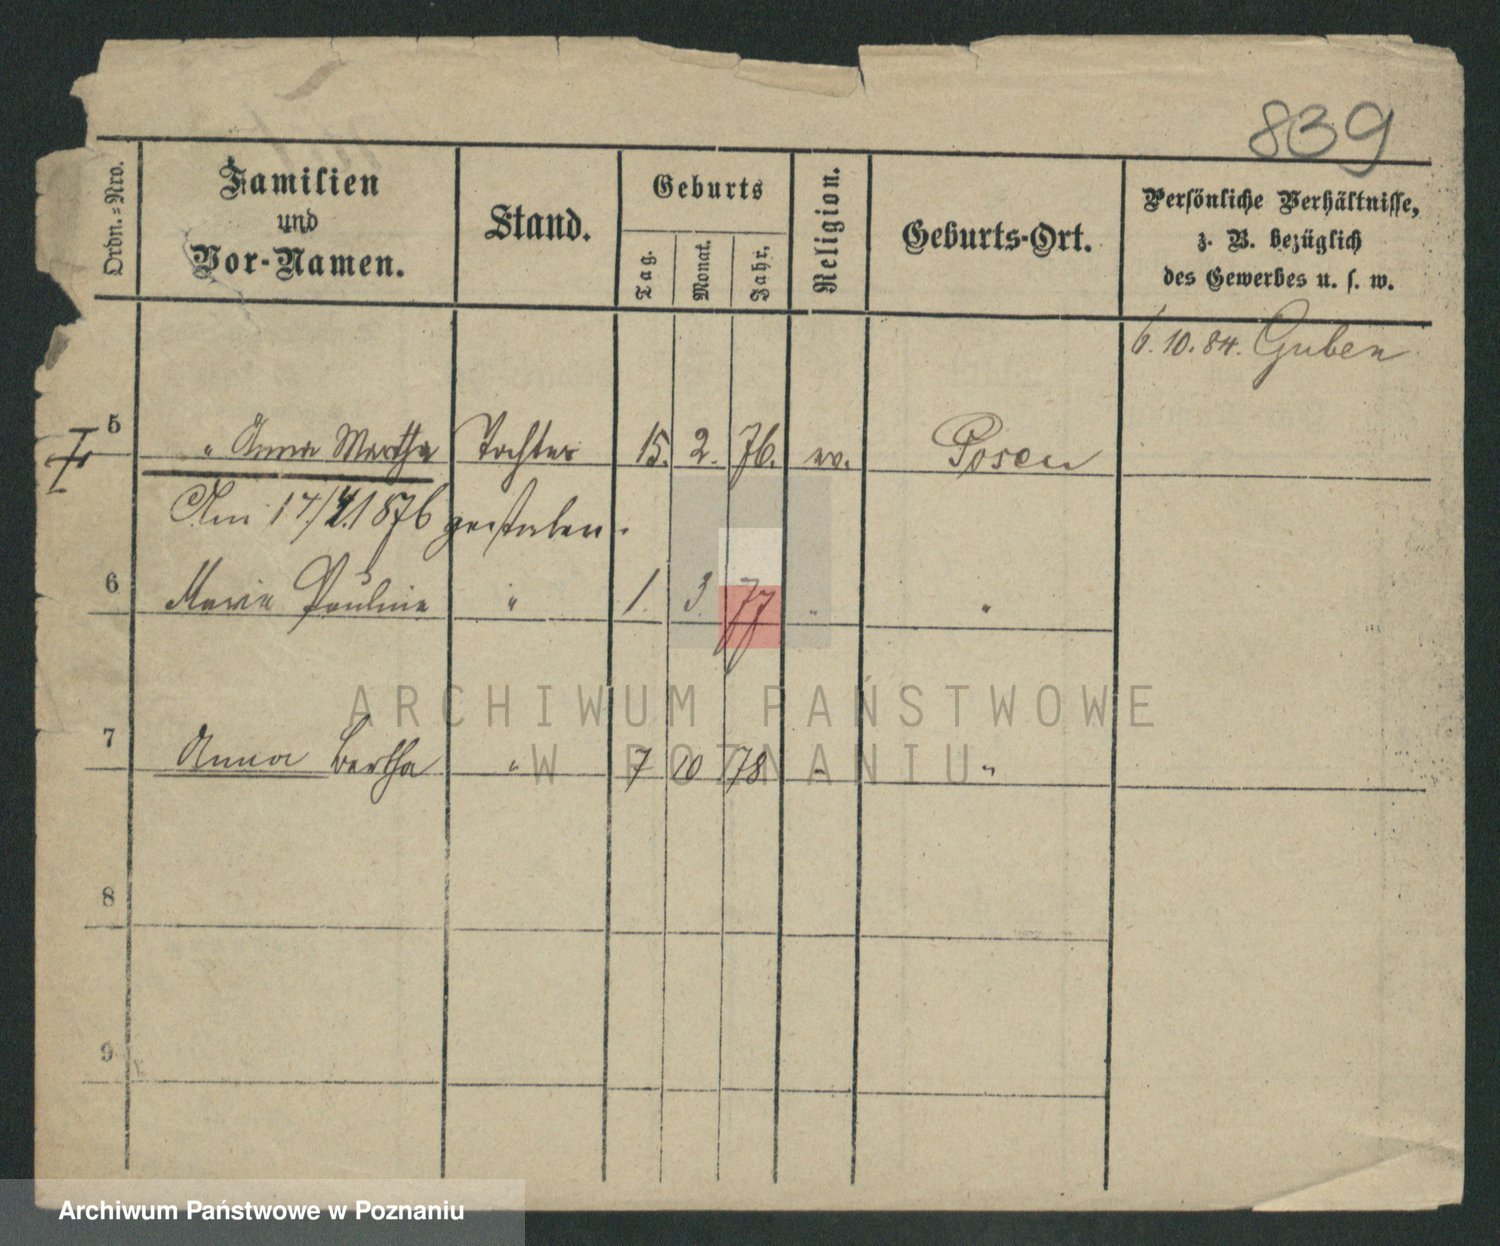 839
Ordn.=Nro.
Familien
und
Vor-Namen.
Stand.
Geburts
Tag.
Monat.
Jahr.
Religion.
Geburts-Ort.
Persönliche Verhältnisse,
z. B. bezüglich
des Gewerbes u. s. w.
6. 10. 84. Guben
5 " Anna Martha Tochter 15. 2. 76. ev. Posen
Am 17/4.1876 gestorben.
6 Maria Pauline " 1. 3. 77 " "
7 Anna Bertha " 7 10 78 " "
8
9
ARCHIWUM PAŃSTWOWE
W POZNANIU
Archiwum Państwowe w Poznaniu